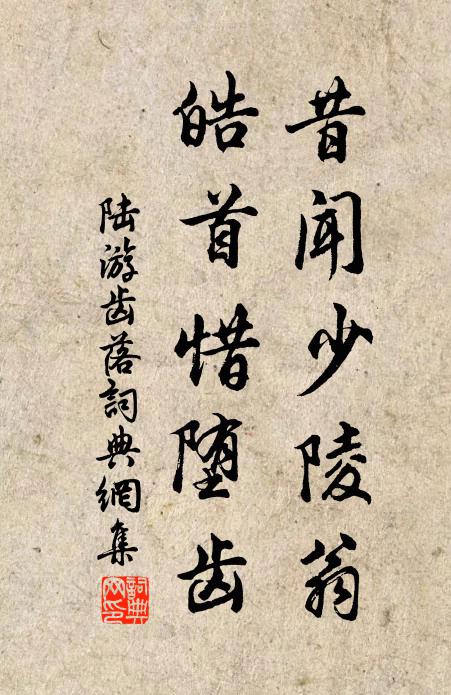 昔闻少陵翁
皓首惜堕齿
陆游齿落詞典網集
詞典
网印